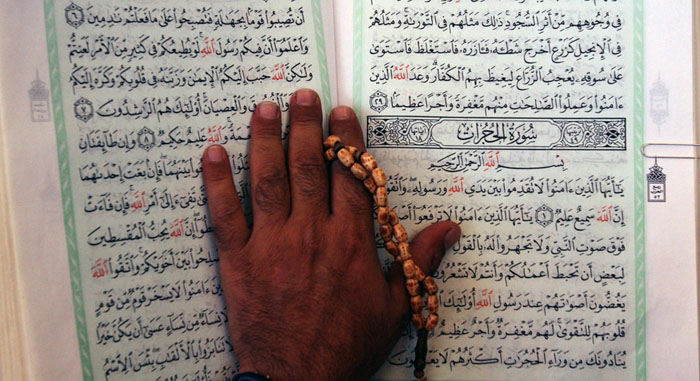 فِى وُجُوهِهِم مِّنْ أَثَرِ ٱلسُّجُودِ ذَٰلِكَ مَثَلُهُمْ فِى ٱلتَّوْرَىٰةِ وَمَثَلُهُمْ
فِى ٱلْإِنجِيلِ كَزَرْعٍ أَخْرَجَ شَطْـَٔهُۥ فَـَٔازَرَهُۥ فَٱسْتَغْلَظَ فَٱسْتَوَىٰ
عَلَىٰ سُوقِهِۦ يُعْجِبُ ٱلزُّرَّاعَ لِيَغِيظَ بِهِمُ ٱلْكُفَّارَ وَعَدَ ٱللَّهُ ٱلَّذِينَ
ءَامَنُوا۟ وَعَمِلُوا۟ ٱلصَّٰلِحَٰتِ مِنْهُم مَّغْفِرَةً وَأَجْرًا عَظِيمًا ٢٩
سُورَةُ الحُجُرَاتِ
بِسْمِ ٱللَّهِ ٱلرَّحْمَٰنِ ٱلرَّحِيمِ
يَٰٓأَيُّهَا ٱلَّذِينَ ءَامَنُوا۟ لَا تُقَدِّمُوا۟ بَيْنَ يَدَىِ ٱللَّهِ وَرَسُولِهِۦ وَٱتَّقُوا۟
إِنَّ ٱللَّهَ سَمِيعٌ عَلِيمٌ ١ يَٰٓأَيُّهَا ٱلَّذِينَ ءَامَنُوا۟ لَا تَرْفَعُوٓا۟
فَوْقَ صَوْتِ ٱلنَّبِىِّ وَلَا تَجْهَرُوا۟ لَهُۥ بِٱلْقَوْلِ
لِبَعْضٍ أَن تَحْبَطَ أَعْمَٰلُكُمْ وَأَنتُمْ لَا تَشْعُرُونَ
يَغُضُّونَ أَصْوَٰتَهُمْ عِندَ رَسُولِ ٱللَّهِ أُو۟لَٰٓئِكَ
قُلُوبَهُمْ لِلتَّقْوَىٰ لَهُم مَّغْفِرَةٌ وَأَجْرٌ عَظِيمٌ
يُنَادُونَكَ مِن وَرَآءِ ٱلْحُجُرَٰتِ أَكْثَرُهُمْ لَا
أَن تُصِيبُوا۟ قَوْمًۢا بِجَهَٰلَةٍ فَتُصْبِحُوا۟ عَلَىٰ مَا فَعَلْتُمْ نَٰدِمِينَ ٦
وَٱعْلَمُوٓا۟ أَنَّ فِيكُمْ رَسُولَ ٱللَّهِ لَوْ يُطِيعُكُمْ فِى كَثِيرٍ مِّنَ ٱلْأَمْرِ لَعَنِتُّمْ
وَلَٰكِنَّ ٱللَّهَ حَبَّبَ إِلَيْكُمُ ٱلْإِيمَٰنَ وَزَيَّنَهُۥ فِى قُلُوبِكُمْ وَكَرَّهَ إِلَيْكُمُ
وَٱلْعِصْيَانَ أُو۟لَٰٓئِكَ هُمُ ٱلرَّٰشِدُونَ ٧
ٱللَّهُ عَلِيمٌ حَكِيمٌ ٨ وَإِن طَآئِفَتَانِ
بَيْنَهُمَا فَإِنۢ بَغَتْ إِحْدَىٰهُمَا
تَفِىٓءَ إِلَىٰٓ أَمْرِ ٱللَّهِ فَإِن فَآءَتْ
ٱللَّهَ يُحِبُّ ٱلْمُقْسِطِينَ
بَيْنَ أَخَوَيْكُمْ وَٱتَّقُوا۟ ٱللَّهَ
ءَامَنُوا۟ لَا يَسْخَرْ قَوْمٌ مِّن قَوْمٍ
نِسَآءٌ مِّن نِّسَآءٍ عَسَىٰٓ أَن يَكُنَّ خَيْرًا
تَنَابَزُوا۟ بِٱلْأَلْقَٰبِ بِئْسَ ٱلِٱسْمُ